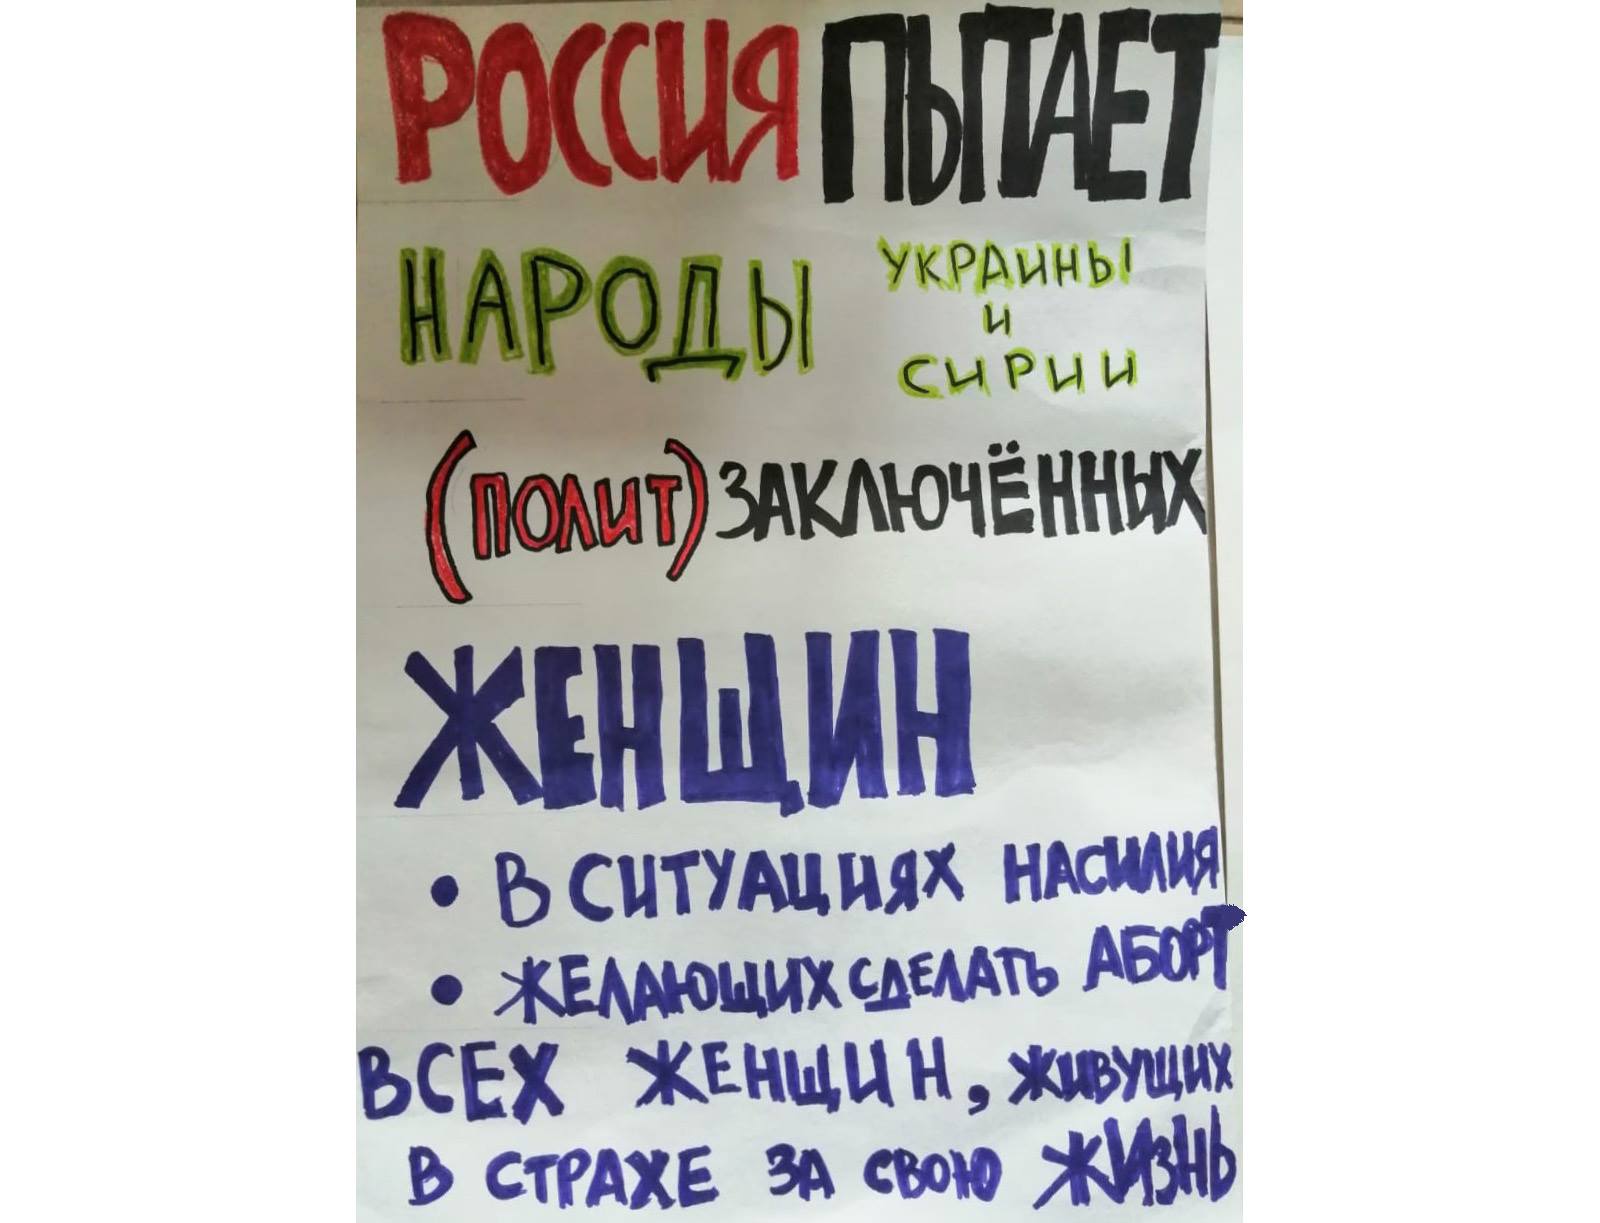 РОССИЯ ПЫТАЕТ
НАРОДЫ УКРАИНЫ
И
СИРИИ
(ПОЛИТ)ЗАКЛЮЧЁННЫХ
ЖЕНЩИН
• В СИТУАЦИЯХ НАСИЛИЯ
• ЖЕЛАЮЩИХ СДЕЛАТЬ АБОРТ
ВСЕХ ЖЕНЩИН, ЖИВУЩИХ
В СТРАХЕ ЗА СВОЮ ЖИЗНЬ